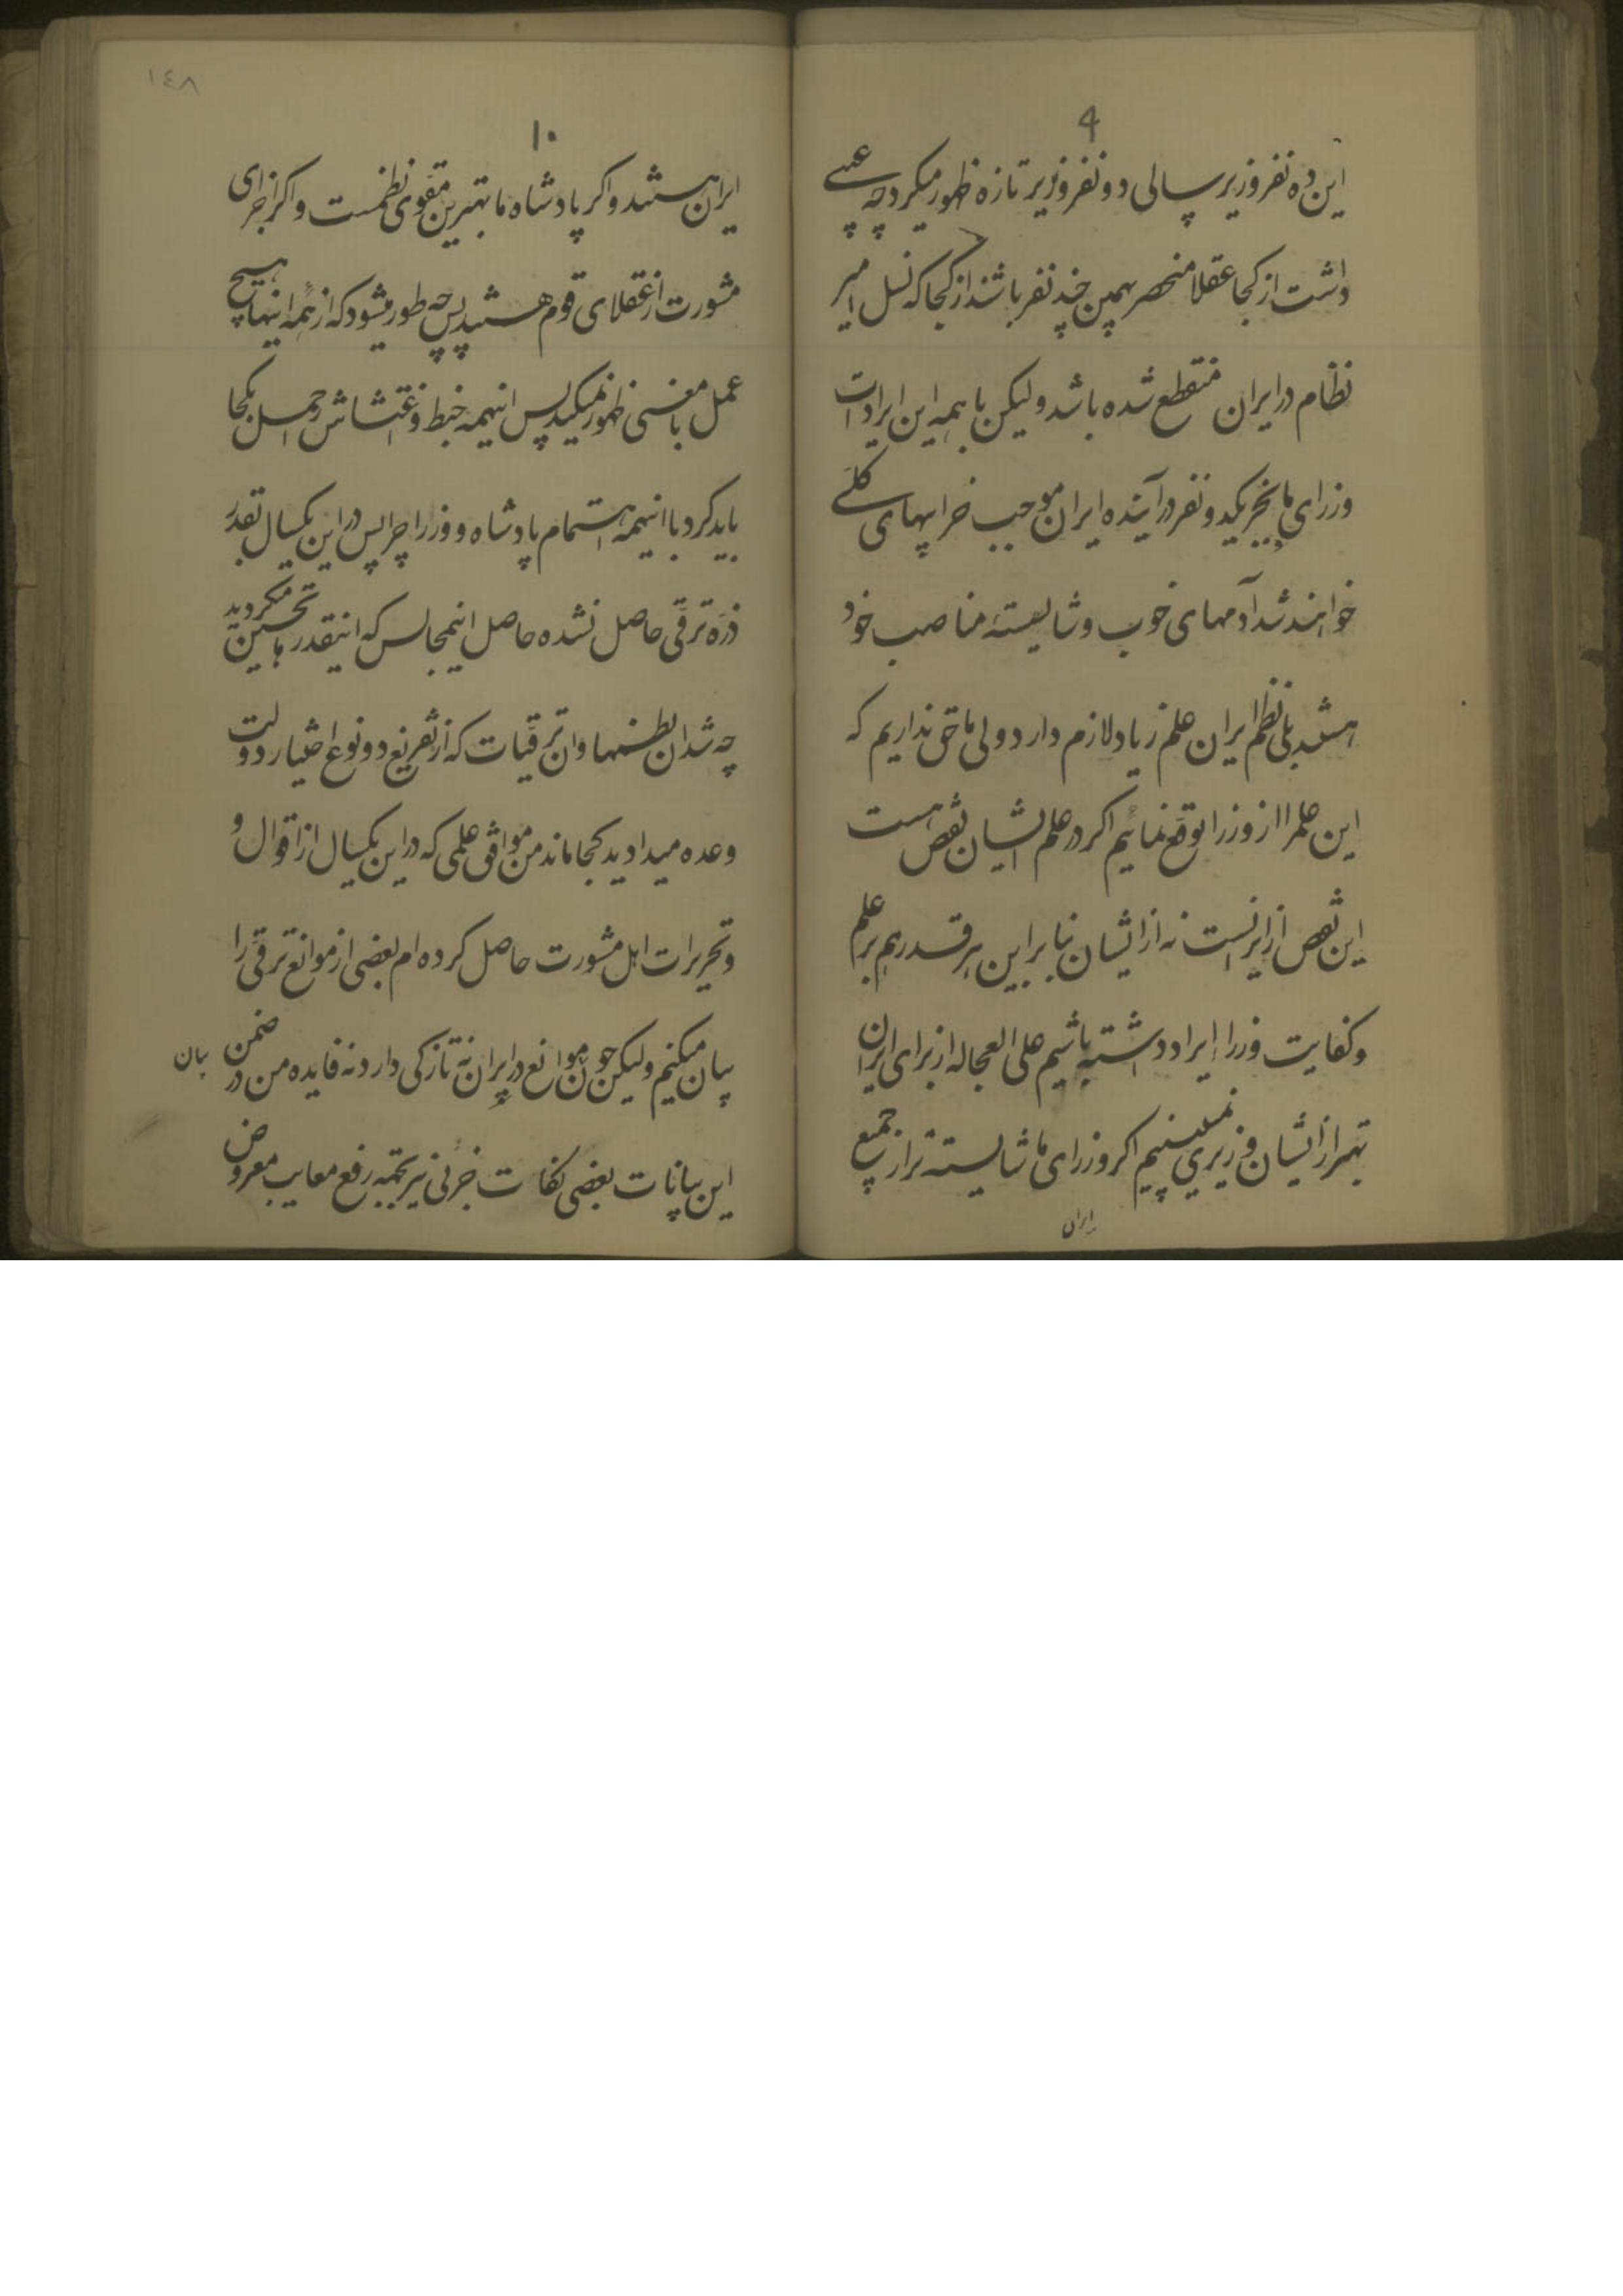 ۹
این ده نفر وزیر سالی دو نفر وزیر تازه ظهور میکرد چه عیبی
داشت از کجا عقلا منحصر بهمین چند نفر باشند از کجا که نسل امیر
نظام در ایران منقطع شده باشد ولیکن با همه این ایرادات
وزرای ما بجز یکدو نفر در آینده ایران موجب خرابیهای کلی
خواهند شد آدمهای خوب و شایسته مناصب خود
هستند بلی نظم ایران علم زیاد لازم دارد ولی ما حق نداریم که
این علم را از وزرا توقع نمائیم اگر در علم ایشان نقص هست
این نقص از ایرانست نه از ایشان بنابراین هر قدر هم بر علم
و کفایت وزرا ایراد داشته باشیم علی العجاله از برای ایران
بهتر از ایشان وزیری نمیبینیم اگر وزرای ما شایسته تر از جمیع
ایران
١٤٨
۱۰
ایران هستند و اگر پادشاه ما بهترین مقوی نظمست و اگر اجزای
مشورت از عقلای قوم هستند پس چه طور میشود که از همه اینها هیچ
عمل با معنی ظهور نمیکند پس اینهمه خبط و اغتشاش را حمل بکجا
باید کرد با اینهمه اهتمام پادشاه و وزرا چرا پس در این یکسال بقدر
ذره ترقی حاصل نشده حاصل اینمجالس که اینقدرها تحسین میکردید
چه شد ان نظمها و ان ترقیات که از تفریع دو نوع اختیار دولت
وعده میدادید کجا ماند من موافق علمی که در این یکسال از اقوال و
و تحریرات اهل مشورت حاصل کرده ام بعضی از موانع ترقی را
بیان میکنم ولیکن چون موانع در ایران نه تازکی دارد نه فایده من در ضمن
این بیانات بعضی نکات جزئی نیز بجهه رفع معایب معروض
بیان